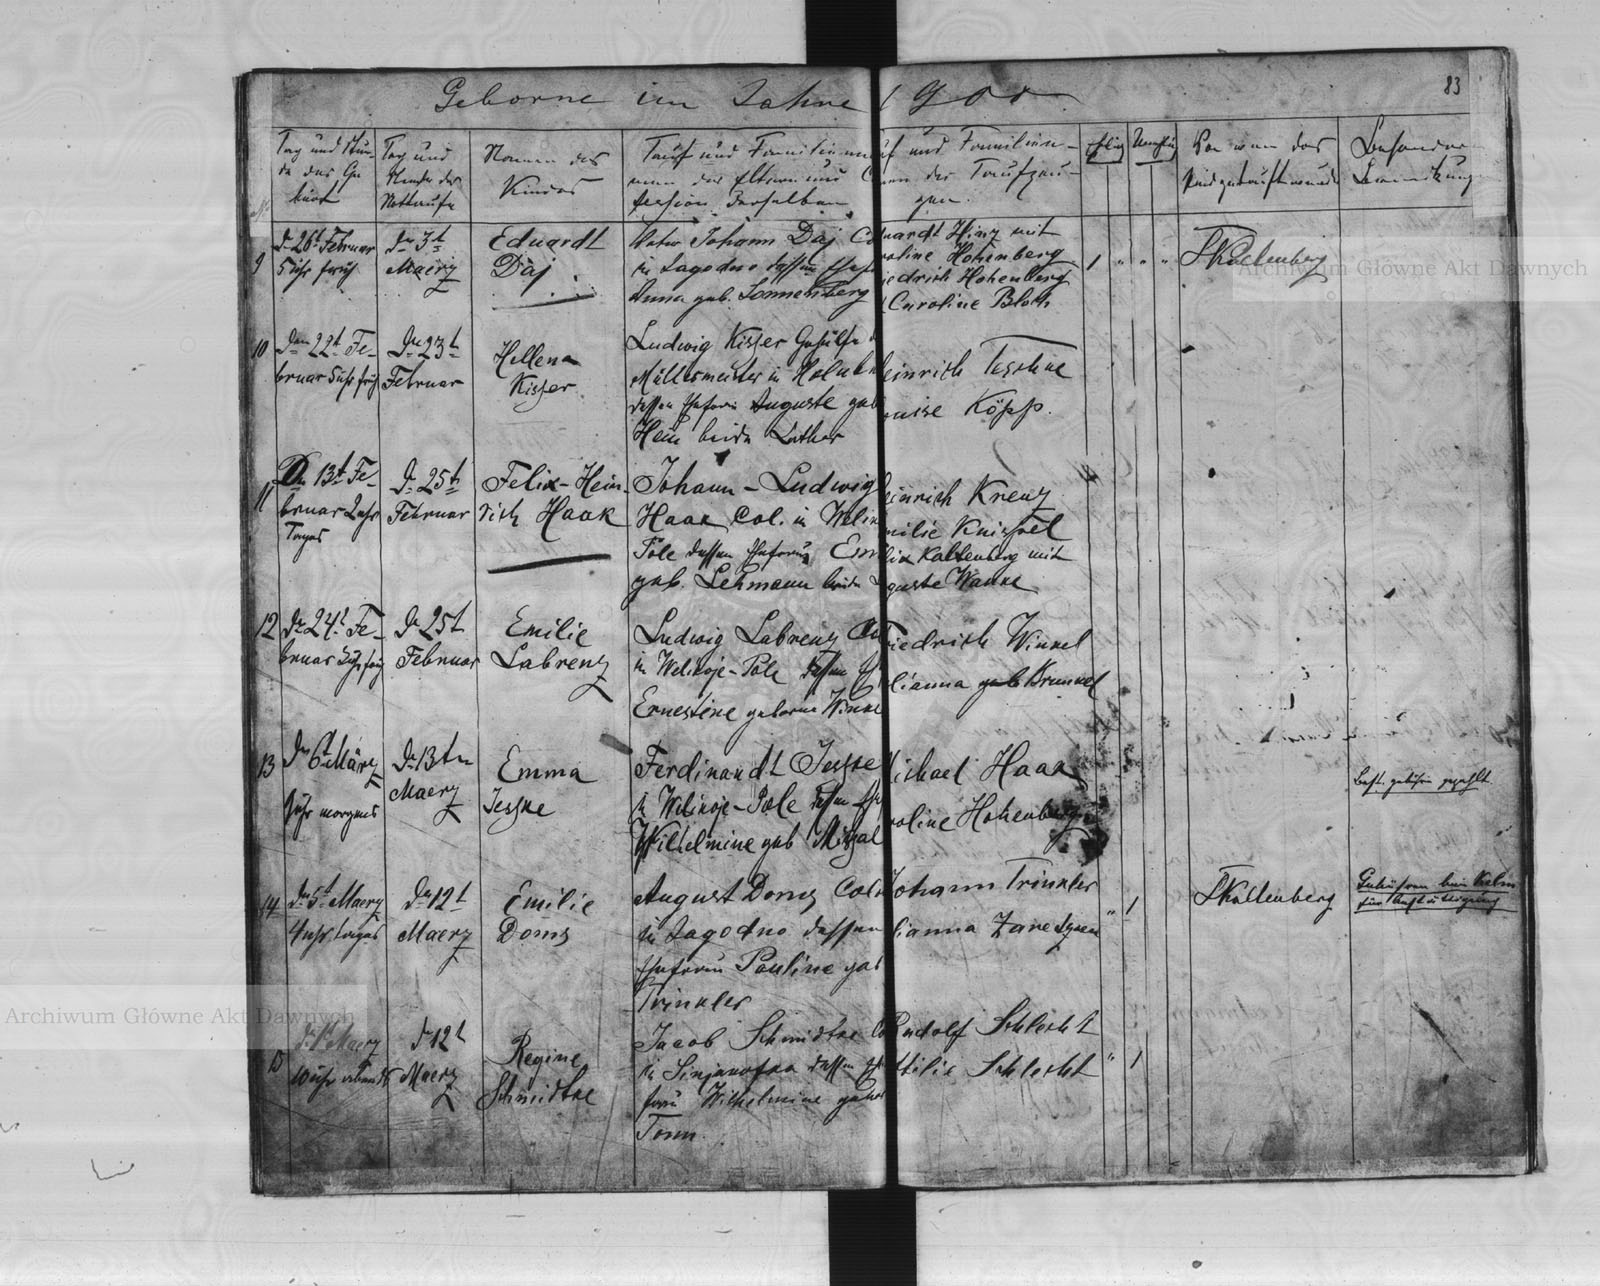 Geborne im Jahre 1900
83
Tag und Stun-
de der Ge
burt
Tag und
Stunde der
Nottaufe
Namen des
Kindes
Tauf und Familienna
men der Eltern und
fession derselben
uf und Familien-
men der Taufzeu-
gen.
Von wem das
Kind getauft wurde
Besondere
Bemerkung
9
d. 26t Februar
5 Uhr früh
d. 3t
Maerz
Eduardt
Daj
Vater Johann Daj Co
in Jagodno dessen Ehef
Anna geb. Sonnenberg
uardt Hinz mit
roline Hohenberg
iedrich Hohenberg
Caroline Bloch
1 " " "
Kaltenberg
10
Den 22t Fe-
bruar 5 uhr früh
D. 23t
Februar
Hellena
Kisser
Ludwig Kisser Gehülfe d
Müllermeister in
dessen Ehefrau Auguste geb
Hein beide Luther
einrich Teschke
ouise Köpp.
11
D. 13t Fe-
bruar 2 uhr
Tages
D. 25t
Februar
Felix-Hein-
rich Haak
Johann-Ludwig
Haak Col. in Welik
Pole dessen Ehefrau Emi
geb. Lehmann beide
einrich Kreuz
milie Knispel
lix Kaltenberg mit
guste Wanke
12
D. 24t Fe-
bruar früh
D. 25t
Februar
Emilie
Labrenz
Ludwig Labrenz
in Welikoje-Pole dessen Eh
Ernestine geborne Winke
riedrich Winkel
lianna geb Krunkel
13
D. 6t März
Uhr morgens
D. 13ten
Maerz
Emma
Jeske
Ferdinandt Jeske
in Welikoje-Pole dessen Ehe
Wilhelmine geb
ichael Haak
roline Hohenberg
gezahlt
14
D. 5t Maerz
4 uhr tages
D. 12t
Maerz
Emilie
Doms
August Doms Colo
in Jagodno dessen
Ehefrau Pauline geb
Trinkler
Johann Trinkler
lianna
" 1
Kaltenberg
15
d. 1t Maerz
10 uhr abends
d. 12t
Maerz
Regine
Schmidtke
Jacob Schmidtke Co
in Sinjanofka dessen Ehe
frau Wilhelmine gebor
Tonn.
Rudolf Schlecht
ttilie Schlecht
" 1
Archiwum Główne Akt Dawnych
Archiwum Główne Akt Dawnych